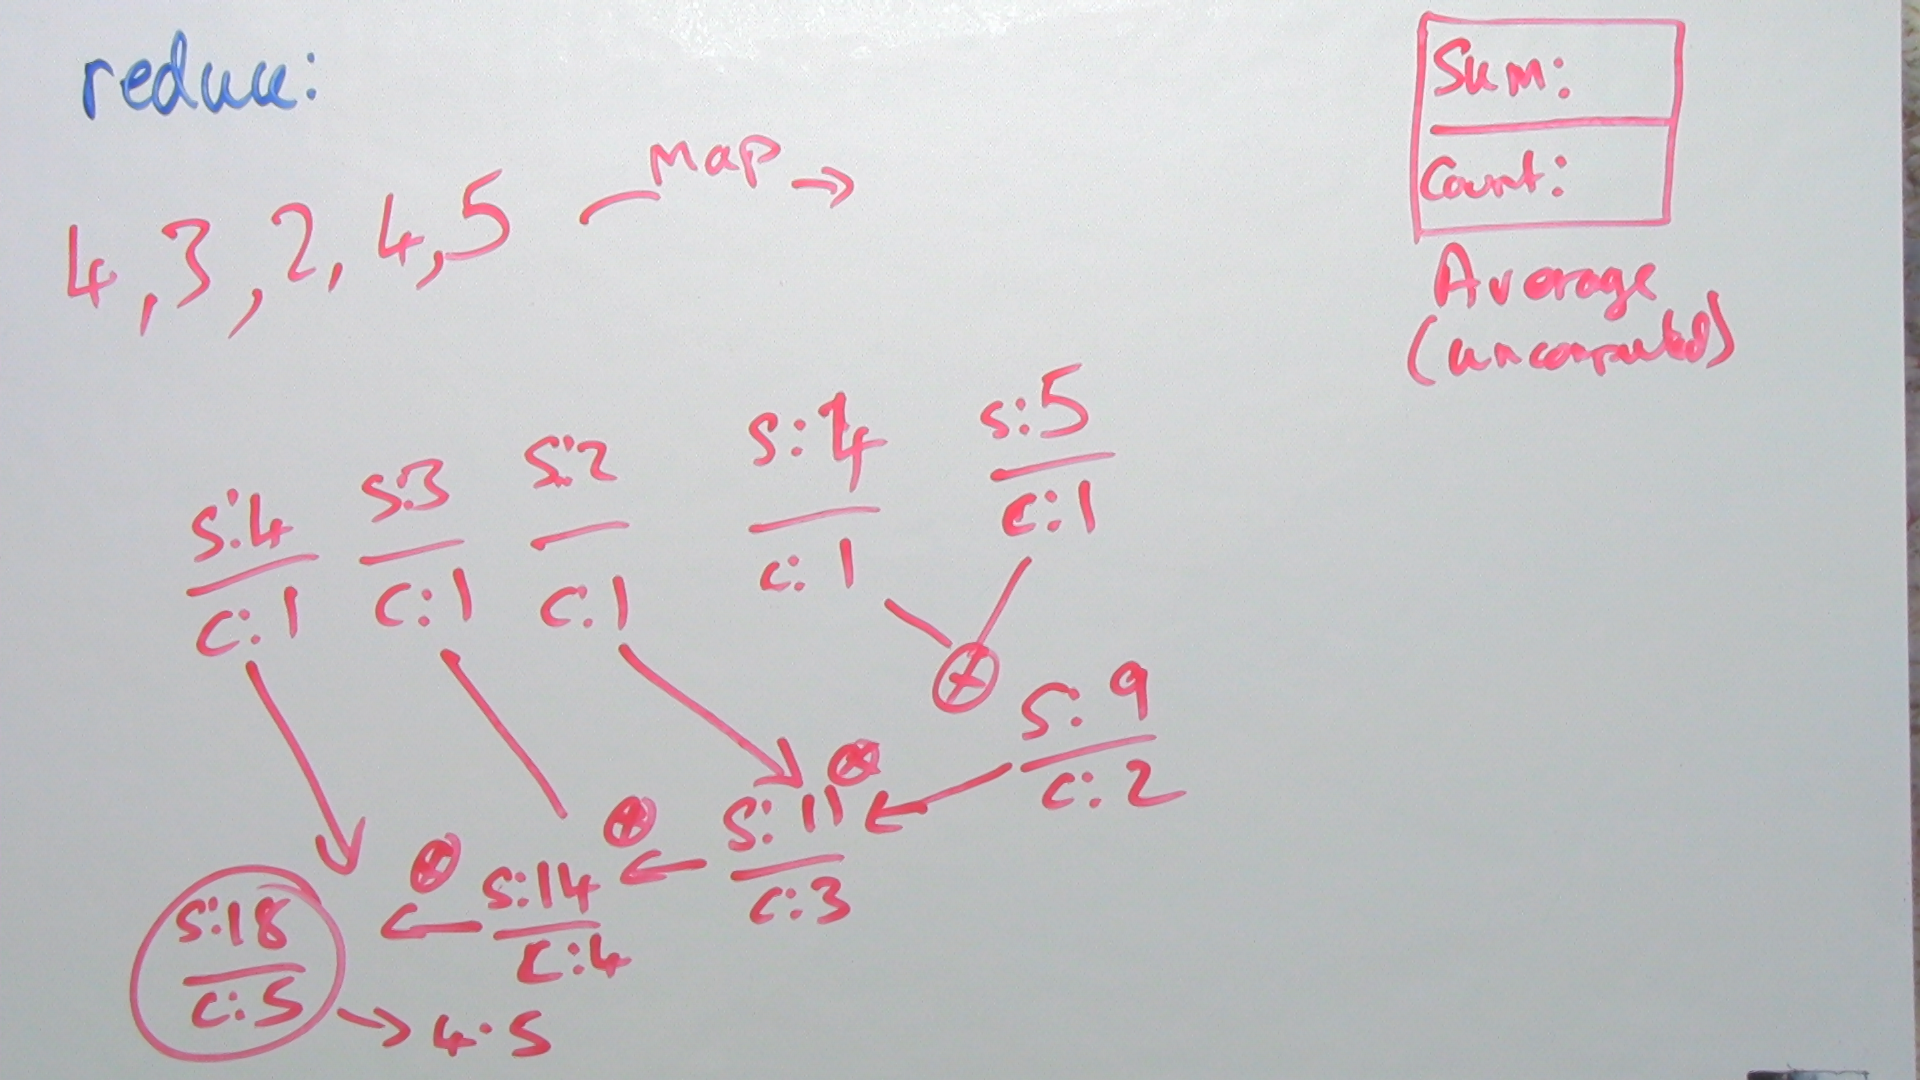 reduce:
Sum:
Count:
Average
(uncomputed)
Map
4, 3, 2, 4, 5
S:4
C:1
S:3
C:1
S:2
C:1
S:4
C:1
S:5
C:1
+
S:9
C:2
+
S:11
C:3
+
S:14
C:4
+
S:18
C:5
4.5